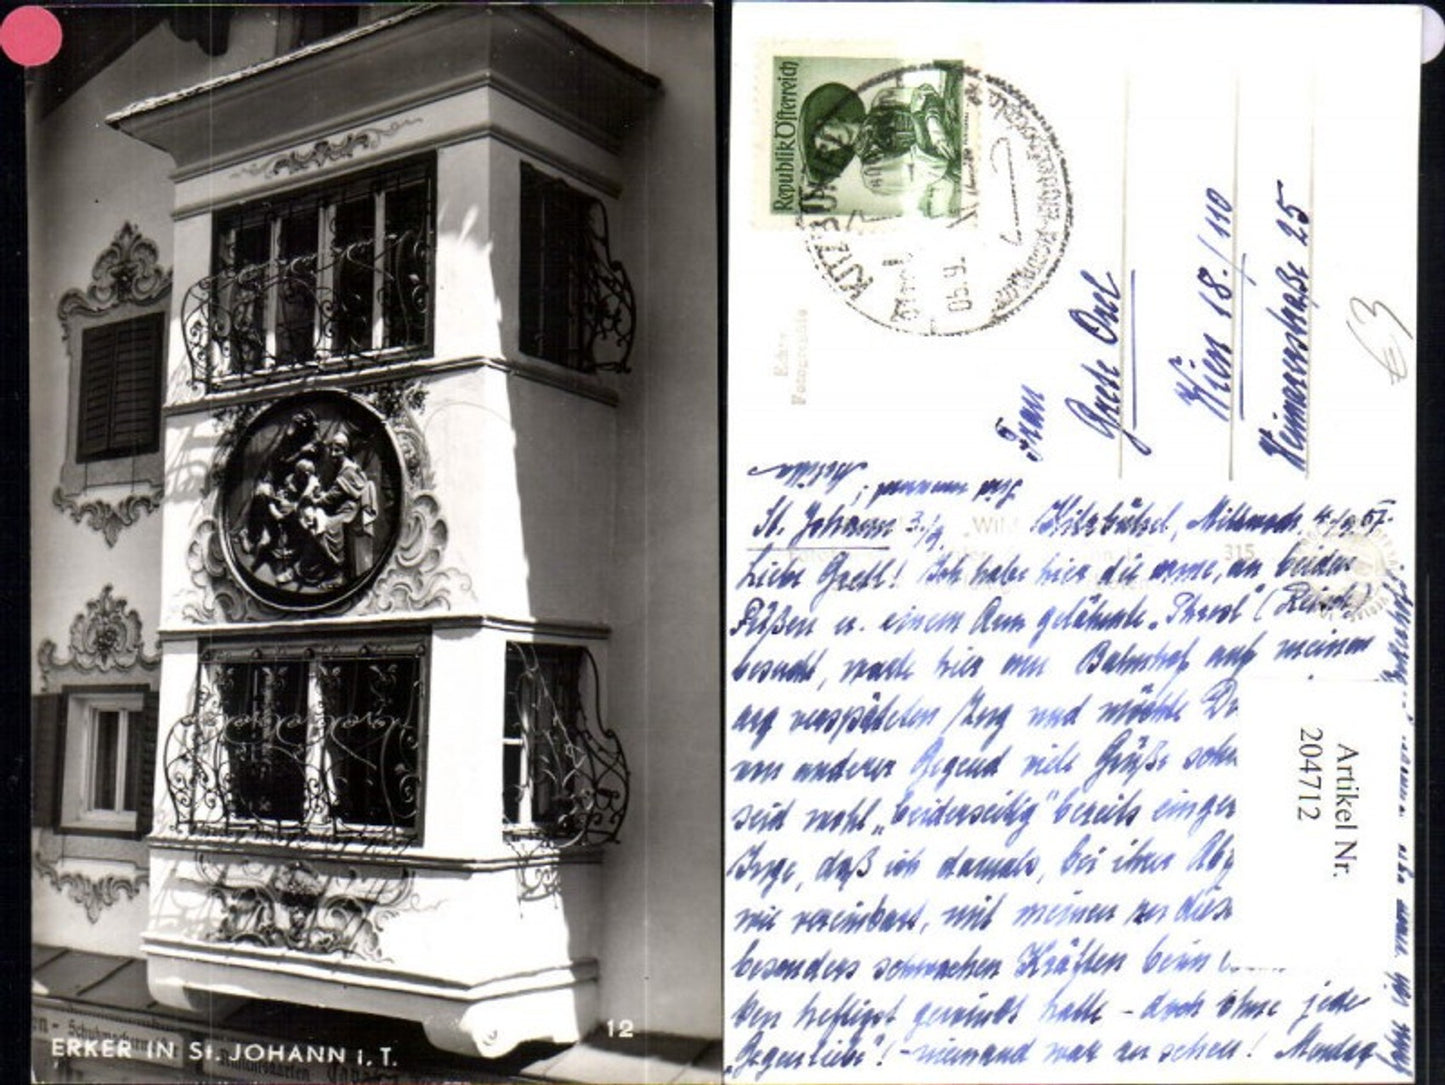 ERKER IN St. JOHANN i. T.
12
Schuhmacher
Republik Österreich
KITZBÜHEL
Echte
Fotografie
Frau
Grete Oxel
Wien 18./110
Weimarerstraße 25
€3
St. Johann 3./9. Kitzbühel, Mittwoch, 4./9.57.
Liebe Gretl! Ich habe hier die arme, an beiden
Füßen u. einem Arm gelähmte "Thresl" (Reisch)
besucht, warte hier am Bahnhof auf meinen
arg verspäteten Zug und möchte Dir
von anderer Gegend viele Grüße
seid wohl "beiderseitig" bereits
daß ich damals, bei ihrer
wie vereinbart, mit meinen zu
besonders schwachen Kräften beim
ben heftigst gewinkt hatte - doch ohne jede
"Gegenliebe"! - niemand war zu sehen! Montag
315
Artikel Nr.
204712